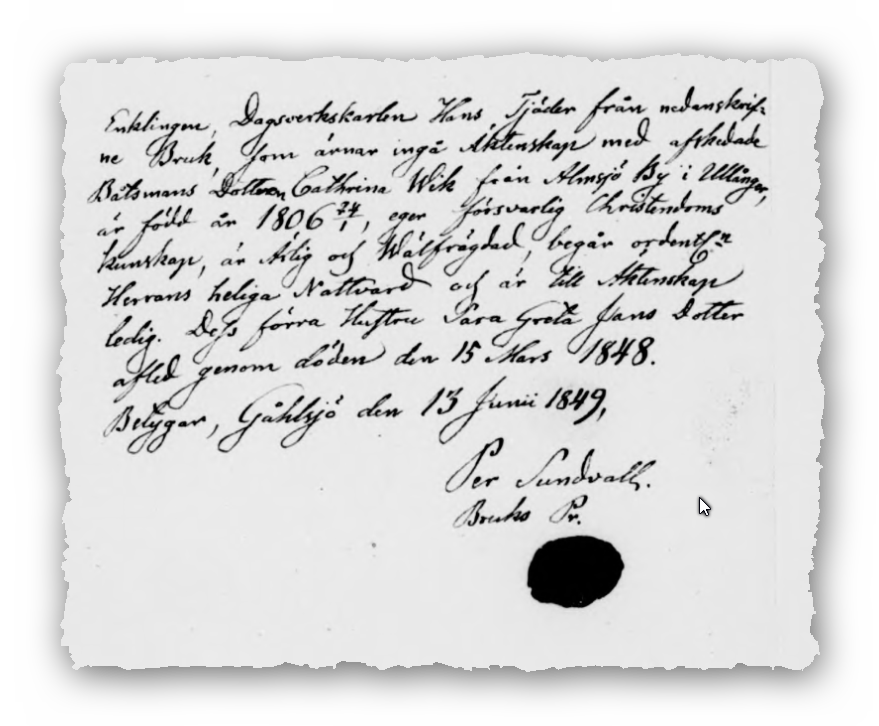 Enklingen, Dagsverkskarlen Hans Tjäder från nedanskrif-
ne Bruk, som ärnar ingå Äktenskap med afskedade
Båtsmans Dottern Cathrina Wik från Almsjö By i Ullånger,
är född år 1806 24/1, eger försvarlig Christendoms
kunskap, är Ärlig och Wälfrägdad, begår ordentl:n
Herrans heliga Nattvard och är till Äktenskap
ledig. Dess förra Hustru Sara Greta Jans Dotter
afled genom döden den 15 Mars 1848.
Betygar, Gåhlsjö den 13 Junii 1849,
Per Sundvall.
Bruks Pr.